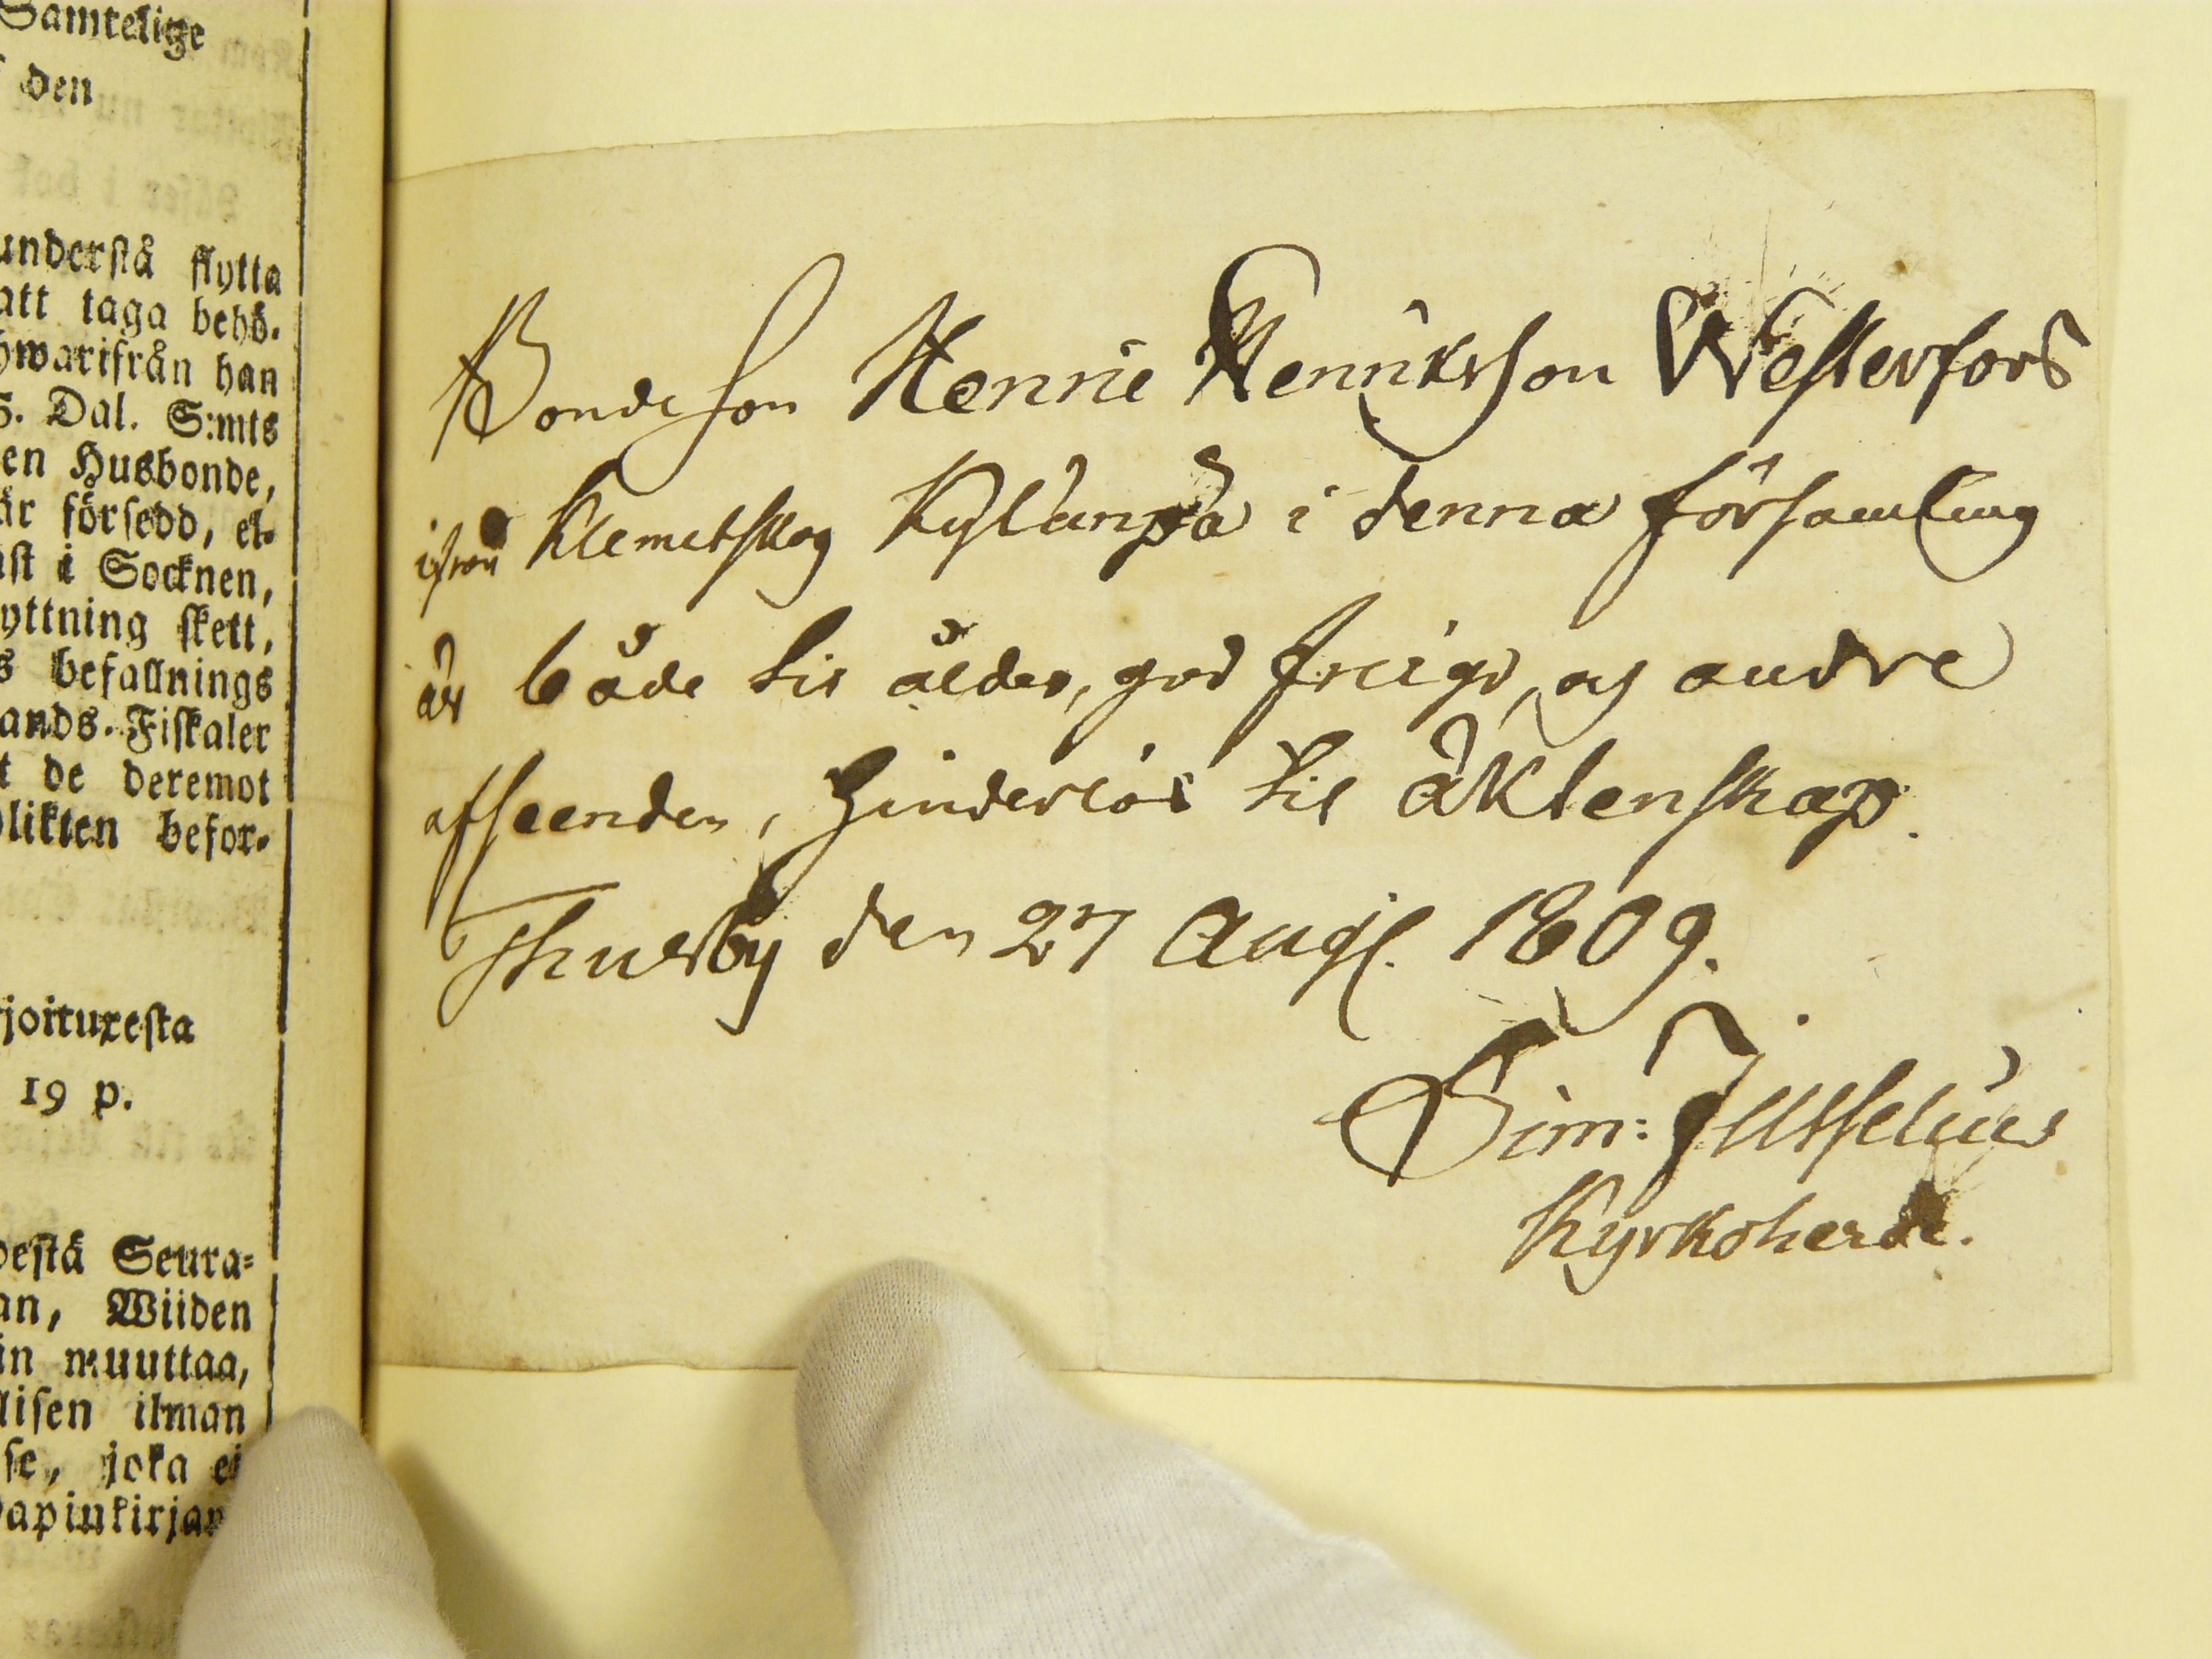 Samtelige
den
understå flytta
att taga behö-
hwarifrån han
S. Dal. S:mts
en Husbonde,
är försedd, el-
st i Socknen,
yttning skett,
s befallnings
ands-Fiskaler
t de deremot
likten befor-
joituxesta
19 p.
destä Seura-
an, Wiiden
in muuttaa,
lisen ilman
se, joka ei
apinkirjan
Bondeson Henric Henriksson Westerfors
ifrån Klemetskog i denna församling
är både til ålder, god freigd, og andre
afseenden, hinderlös til äktenskap.
Thusby den 27 Augs. 1809.
Sim:
Kyrkoherde.